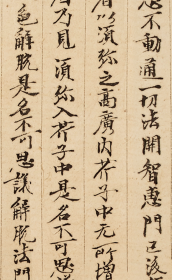 不動通一切法開智惠門已
者以須弥之高廣內芥子中无所增
乃見須弥入芥子中是名不可思
色解脫是名不可思議解脫法門